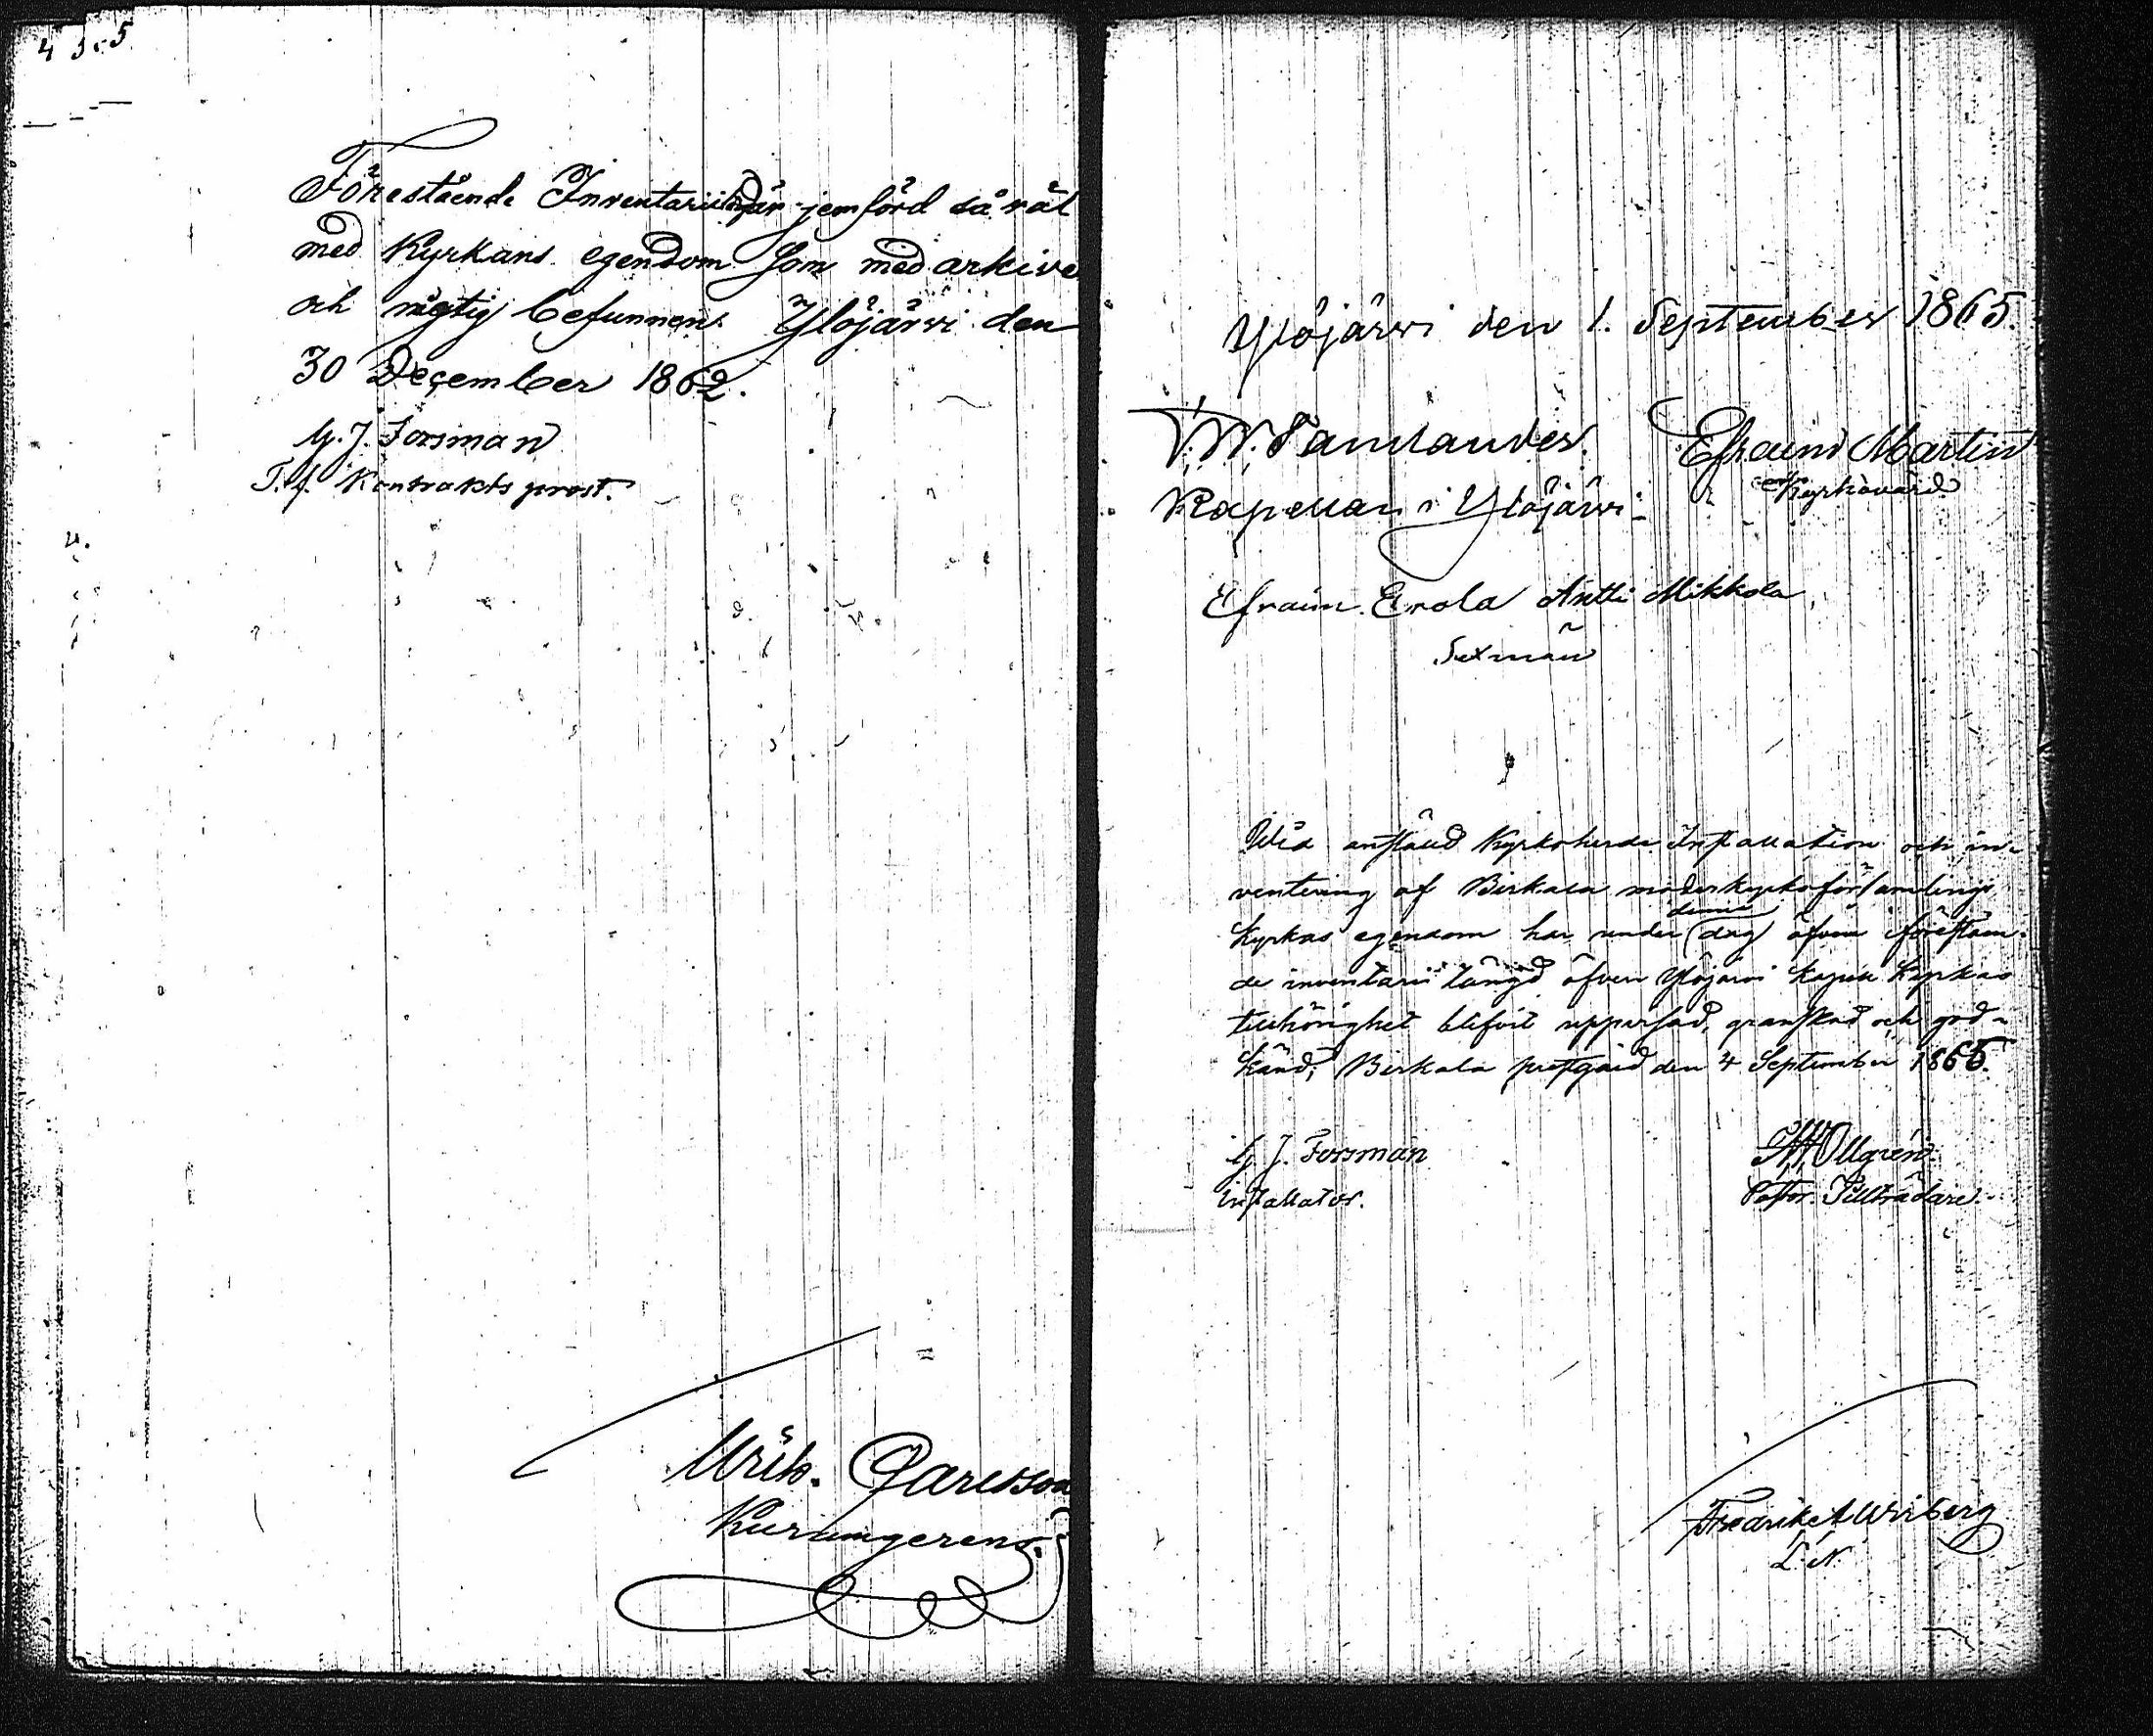 Förestående Inventariilängd är jemförd så väl
med Kyrkans egendom som med arkive
och rigtig befunnen. Ylöjärvi den
30 December 1862.
G. J. Forsman
T. f. Kontrakts prost.
Carlsson
Ylöjärvi den 1. September 1865.
Efraim Martin
Kapellan i Ylöjärvi
Kyrkovärd
Efraim Erola Antti Mikkola
Sexmän
Wid anstäld Kyrkoherde Installation och in-
ventering af Birkala moderkyrkoförsamlings
denne
kyrkas egendom har under dag äfven förestån-
de inventarii längd öfver Ylöjärvi kapell kyrkas
tillhörighet blifvit uppvisad, granskad och god-
känd; Birkala prestgård den 4 September 1865.
G J. Forsman
Installator.
Ollgren
Pastor. Tillträdare
Fredrik A Wirberg
L. N.